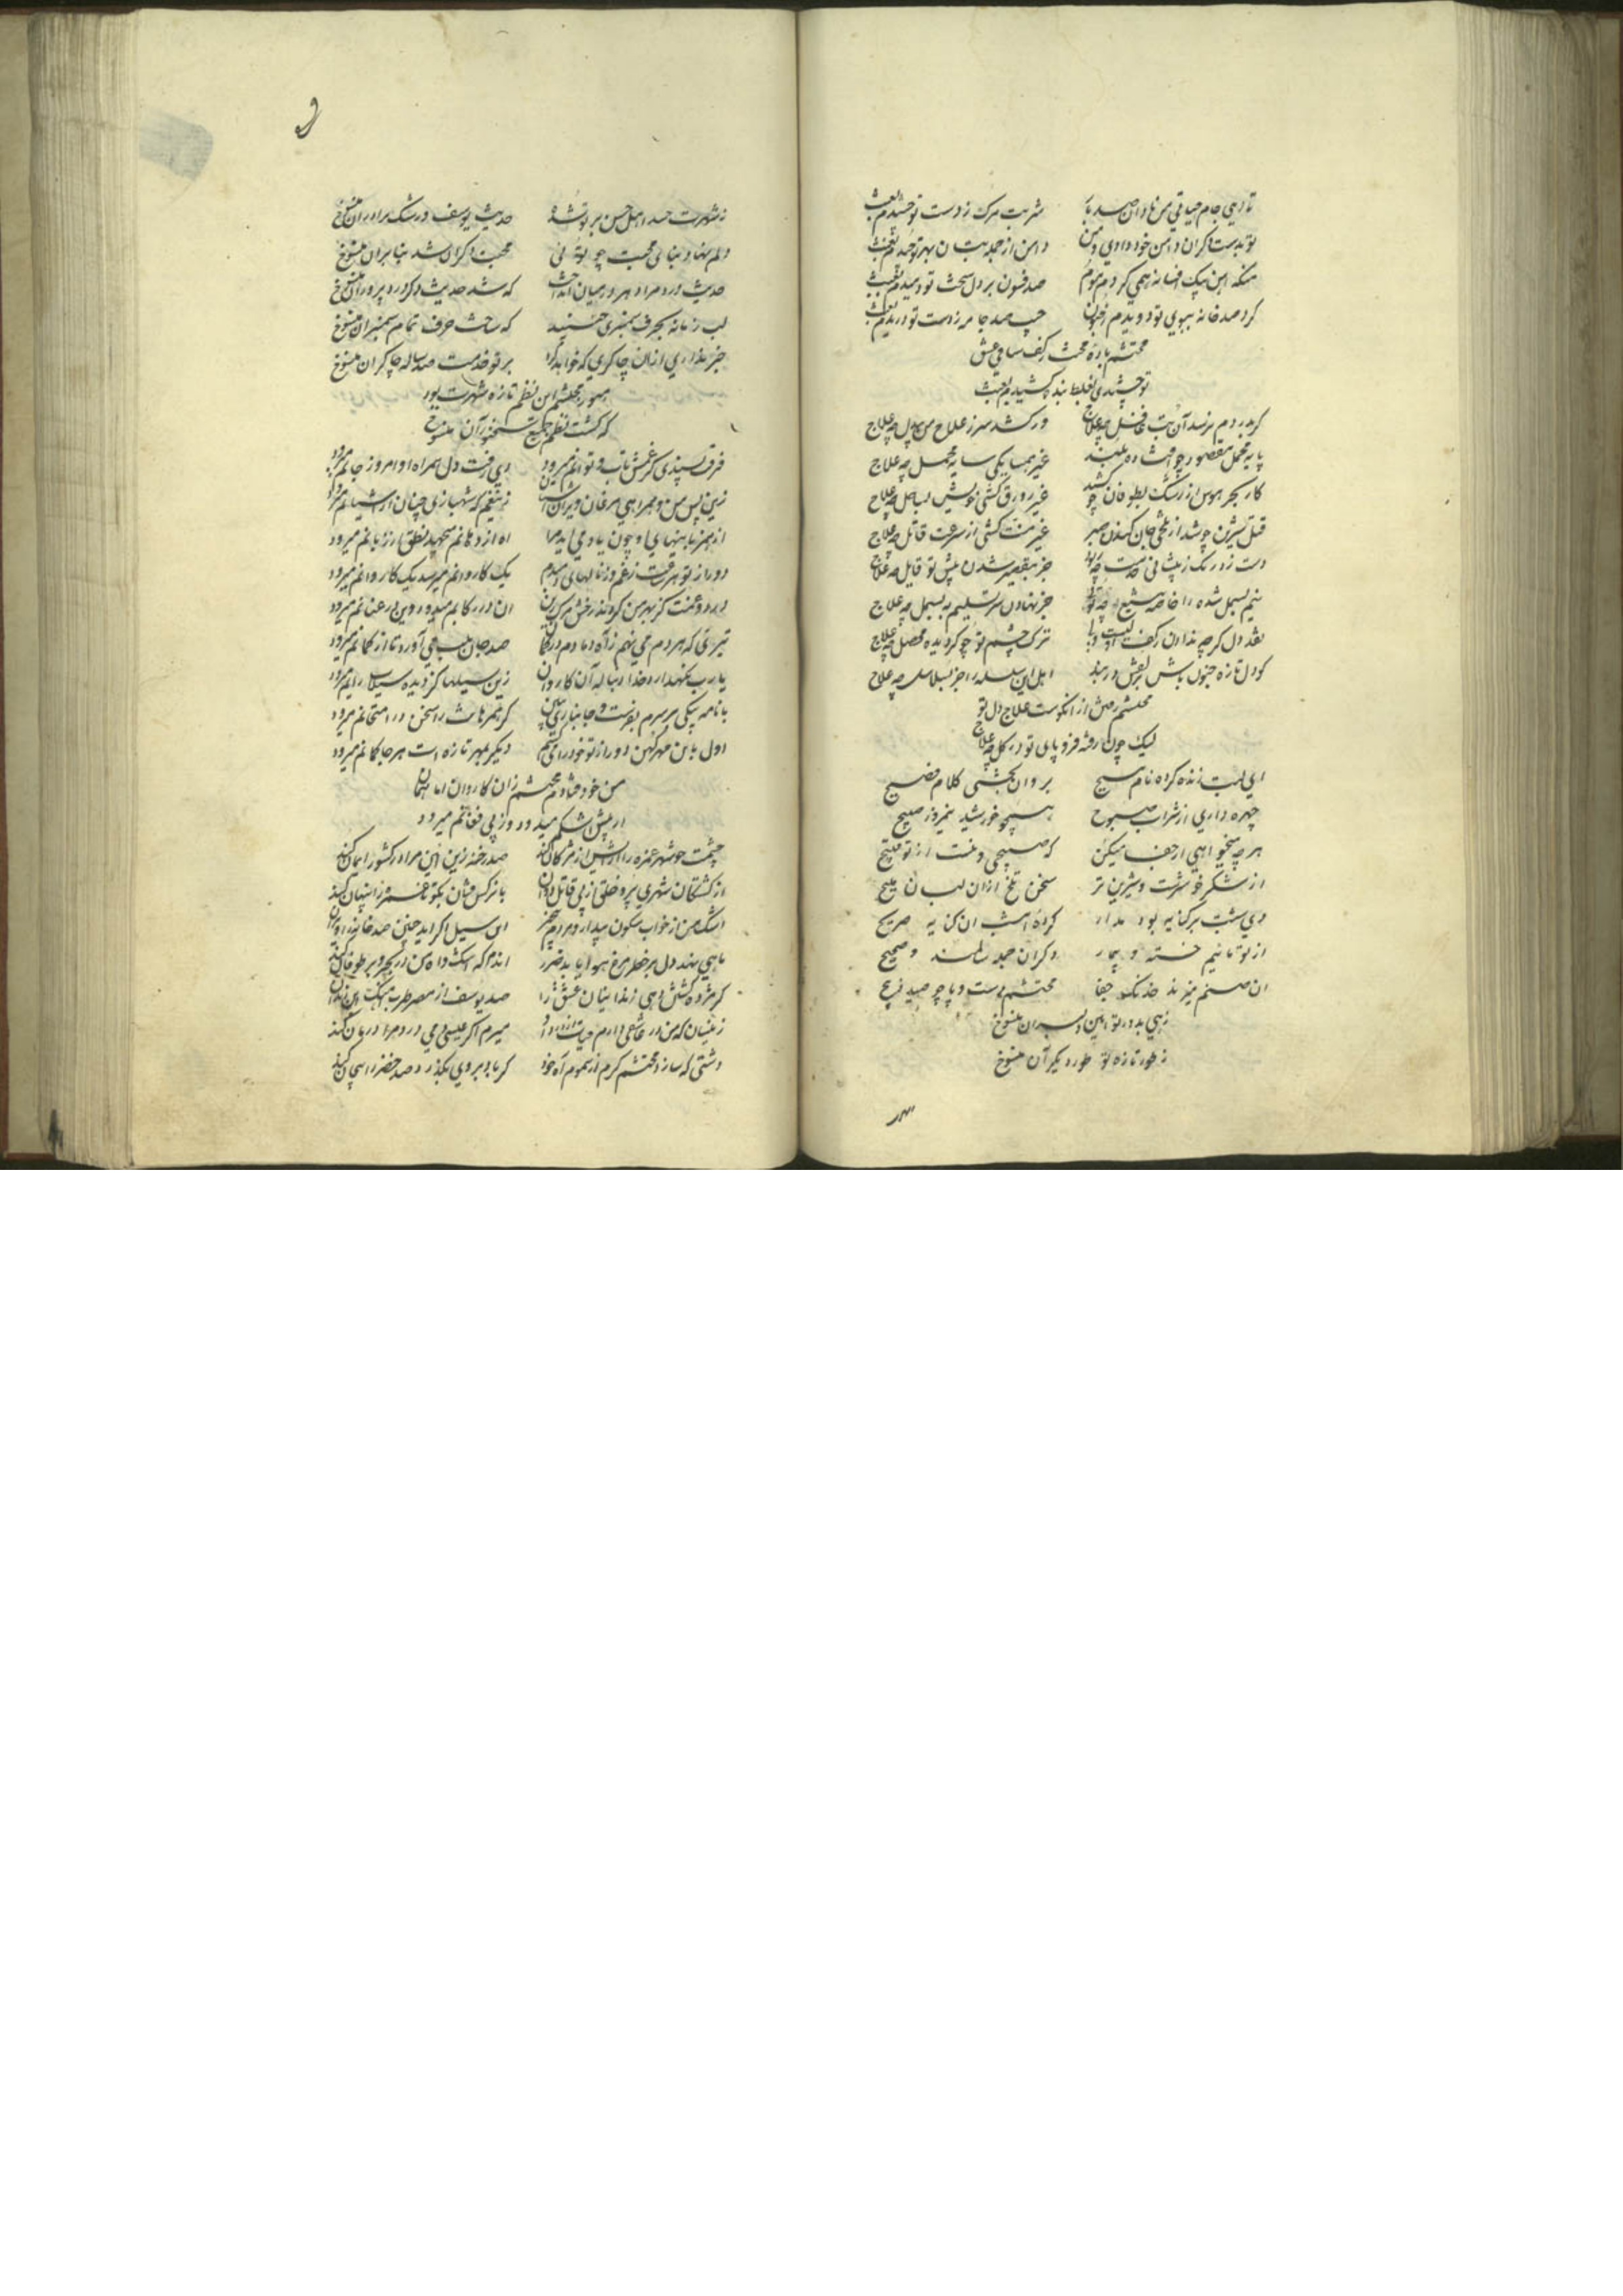 تا دهی جام حیاتی من نادان صد بار شربت مرک ز دست تو چشیدم بعبث
تو بدست دکران دامن خود دادی و من دامن از جمله بتان بهر تو چیدم بعبث
منکه ... بیک افسانه نمی کردم موم صد فسون بر دل سخت تو دمیدم بعبث
کرد صد خانه ببوی تو دویدم ز جنون جیب صد جامه ز دست تو دریدم بعبث
محتشم باده محبت ز کف ساقی عشق
تو چشیدی بغلط بنده کشیدم بعبث
کر بدردم نرسد آن بت غافل چه علاج ور کشد سر ز علاج من بیدل چه علاج
پایه محمل مقصود چو افتاده بلند غیر همسایکی سایه محمل چه علاج
کار بحر هوس از اشک بطوفان چو کشید غیر زورق کشی خویش بساحل چه علاج
قتل شیرین چو شد از تلخی جان کندن صبر غیر منت کشی از سرعت قاتل چه علاج
دست زد رنک ز پیشانی خدمت چه بود جز بتقصیر شدن پیش تو قایل چه علاج
نیم بسمل شده را خاصه بتیغ چو تو جز نهادن سر تسلیم به بسمل چه علاج
نقد دل کرچه ندادن ز کف اولیست ولی ترک چشم تو چو کردیده محصل چه علاج
کو دل تازه جنون باش بزلفش در بند اهل این سلسله را جز بسلاسل چه علاج
محتشم رفتن از آنکوست علاج دل تو
لیک چون رفته فرو پای تو در کل چه علاج
ای لبت زنده کرده نام مسیح بروان بخشی کلام فصیح
چهره داری از شراب صبوح همچو خورشید نیمروز صبیح
هرچه میخواهی از جفا میکن که صبیحی و نیست از تو قبیح
از شکر خوشترست و شیرین تر سخن تلخ از آن لبان ملیح
دی بتشت بر کنایه بود مدار کرده امشب آن کنایه صریح
از تو تنها نیم خسته و بیمار دکران جمله سالمند و صحیح
آن صنم میزند خدنک جفا محتشم دست و پا چو صید ذبیح
زهی بدور تو آیین دلبران منسوخ
ز طور تازه تو طور دیکران منسوخ
ز شهرت حسد اهل حسن بر تو شده حدیث یوسف و رشک برادران منسوخ
دلم نهاد بنای محبت چو تویی محبت دکران شد بنا بر آن منسوخ
حدیث درد مرا دهر در میان انداخت که شد حدیث دکر درد پروران منسوخ
لب زمانه بحرف سمنبری جنبید که ساخت حرف تمام سمنبران منسوخ
جز ... از آن چاکری که خواهد کرد بر تو خدمت صد ساله چاکران منسوخ
هنوز محتشم این نظم تازه شهرت بود
که کشت نظم جمیع سخنوران منسوخ
فرق بستندی کز غمش تاب و توانم میرود دی رفت دل همراه او امروز جانم میرود
زین پس من و همراهی مرغان ویران آشیان ... کو شهبازی چنان از آشیانم میرود
از همزبانیهای او چون یاد می آید مرا آه از دهانم میجهد نطق از زبانم میرود
دور از تو هر شب ز غم وز ناله‌های دمبدم یک کاروانم میرسد یک کاروانم میرود
درد و عنت کز بهر من کردند رخش مرک زین آن در رکابم میدود وین در عنانم میرود
تیری که هر دم می نهم ز آه دمادم در کمان صد جان بلب می آورد تا از کمانم میرود
یا رب نکهدار و خدا دنباله آن کاروان زین سیلها کز دیده سیلاب رانم میرود
با نامه پیکی بر سرم بفرست و جانبازی ببین کز همزبانت را سخن در امتحانم میرود
اول باین مهر کهن دور از تو خود را میکشم دیکر بمهر تازه است هرجا کمانم میرود
من خود فتادم محتشم زان کاروان اما بمان
از پیش اشکم میدود وز پی فغانم میرود
چشمت چو شهر غمزه را آرایش از مژکان کند صد رخنه زین آیین مرا در کشور ایمان کند
از کشتکان شهری پر و خلقی ز پی قاتل دوان با نرکس فتان بکو تا غمزه را پنهان کند
اشک من از خواب سکون بیدار و مردم بیخبر این سیل اکر آید چنین صد خانه را ویران کند
ماهی بنند دل بر خطر مرغ هوا یابد ضرر آندم که اشک و آه من در بحر و بر طوفان کند
کر مژده کشتن دهی زندانیان عشق را صد یوسف از مصر طرب آهنک این زندان کند
زینسان که من در عاشقی دارم حیات از درد او میرم اکر عیسی دمی درد مرا درمان کند
دشتی که سازد محتشم کرم از سموم آه خود کر باد بر وی بکذرد صد خضر را بیجان کند